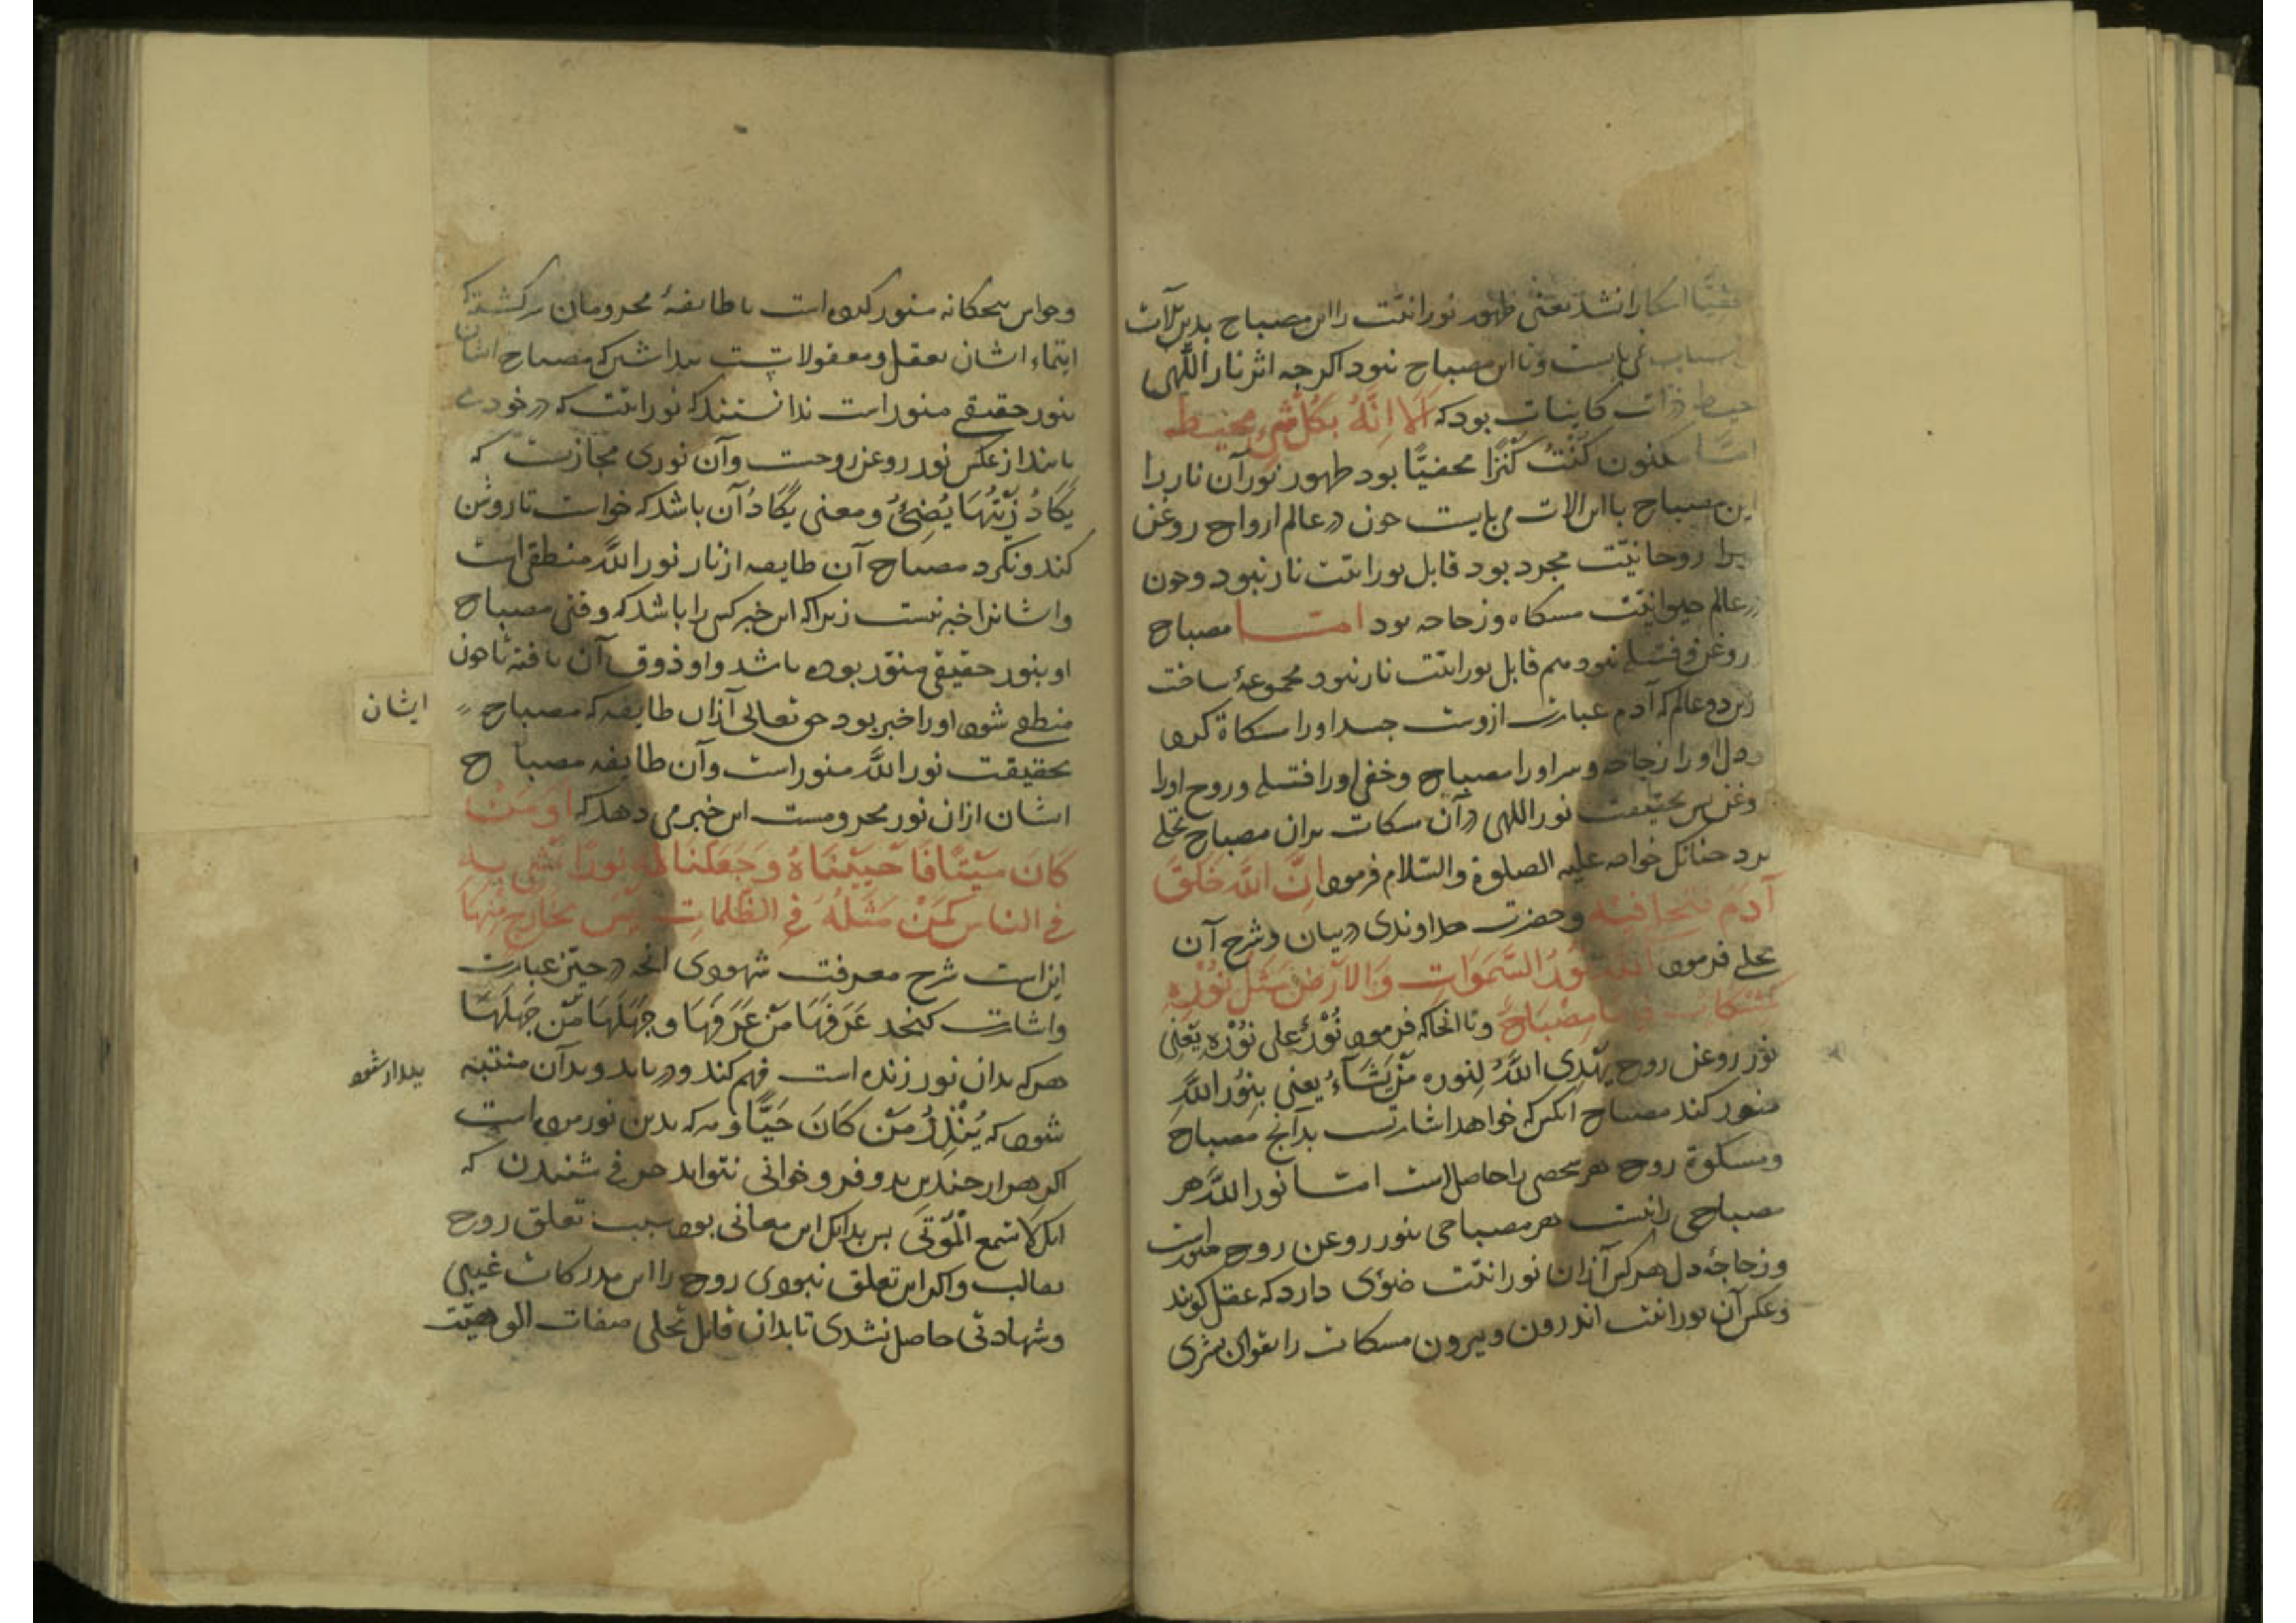 حقیقتا اشکارا نشد یعنی ظهور نورانیّت را این مصباح بدین آلات
اسباب می بایست و تا این مصباح نبود اکرجه اثر نار اللّهی
محیط ذرات کاینات بود که اَلَا اِنَّهُ بِکُلِّ شَیءٍ مُحِیط
امّا مکنون کُنْتُ کَنْزًا مخفیًّا بود ظهور نور آن نار را
این مصباح با این الات می بایست جون در عالم ارواح روغن
روحانیّت مجرد بود قابل نورانیّت نار نبود و جون
در عالم حیوانیّت مسکاه و زجاجه بود امّا مصباح
روغن و فتیله نبود هم قابل نورانیّت نار نبود مجموعهٔ ساخت
زین دو عالم که آدم عبارت ازوست جسد او را مسکاة کرد
و دل او را زجاجه و سر او را مصباح و خفی او را فتیله و روح او را
روغن پس بحقیقت نور اللهی در آن مسکات بران مصباح تجلی
کرد جنانک خواجه علیه الصلوة والسّلام فرمود اِنَّ اللّٰهَ خَلَقَ
آدَمَ فَتَجَلّی فیه و حضرت خداوندی در بیان و شرح آن
تجلی فرمود اَللّٰهُ نُورُ السَّمَوَاتِ وَالاَرْضِ مَثَلُ نُوْرِهِ
کَمِشْکَاتٍ فِیهَا مِصْبَاحٌ و تا انجا که فرمود نُوْرٌ عَلی نُوْرٍ یَعْنِی
نور روغن روح یَهْدِی اللّٰهُ لِنورِه مَنْ یَشَاءُ یعنی بِنُورِ اللّٰهِ
منور کند مصباح انکس که خواهد اشارتست بدآنج مصباح
و مسکوة روح هر شخصی را حاصل است امّا نور اللّٰه هر
مصباحی را نیست هر مصباحی بنور روغن روح منورست
و زجاجهٔ دل هر کس آزان نورانیّت ضوئی دارد که عقل کویند
و عکس آن نورانیّت اندرون و بیرون مسکات را بقوای بشری
و حواس بنجکانه منور کرده است با طایفهٔ محرومان سرکشته که
اینماء اشان بعقل و معقولاتست بنداشتند که مصباح اشان
بنور حقیقی منورست ندانستند که نورانیّت که در خود می
یابند از عکس نور روغن روحست و آن نوری مجازیست که
یَکَادُ زَیْتُهَا یُضِیٔ و معنی یَکَادُ آن باشد که خواست تا روشن
کند و نکرد مصباح آن طایفه از نار نور اللّٰه منطفی است
و اشانرا خبر نیست زیراکه این خبر کسی را باشد که وقتی مصباح
او بنور حقیقی منوّر بوده باشد و او ذوق آن یافته تا جون
منطفی شود او را خبر بود حق تعالی آزان طایفه که مصباح
ایشان
بحقیقت نور اللّٰه منورست و آن طایفه مصباح
اشان ازان نور محرومست این خبر می دهد که اَوَمَنْ
کَانَ مَیْتًا فَاَحْیَیْنَاهُ وَجَعَلْنَا لَهُ نُورًا یَمْشِی بِهِ
فِی النَّاسِ کَمَنْ مَثَلُهُ فِی الظُّلُمَاتِ لَیْسَ بِخَارِجٍ مِنْهَا
این است شرح معرفت شهودی انجه در حیّز عبارت
و اشارت کنجد عَرَفَهَا مَنْ عَرَفَهَا وَجَهِلَهَا مَنْ جَهِلَهَا
هر که بدان نور زنده است فهم کند و دریابد و بدآن منتبه
بیدار شود
شود که یُنْذِرُ مَنْ کَانَ حَیًّا و هر که بدین نور مرده است
اکر هزار جندین بدو فرو خوانی نتواند حرفی شنیدن که
انک لا تسمع الْمَوْتَی بس بدانک این معانی بود سبب تعلق روح
بقالب و اکر این تعلق نبودی روح را این مدرکات غیبی
و شهادتی حاصل نشدی تا بدان قابل تجلی صفات الوهیّت